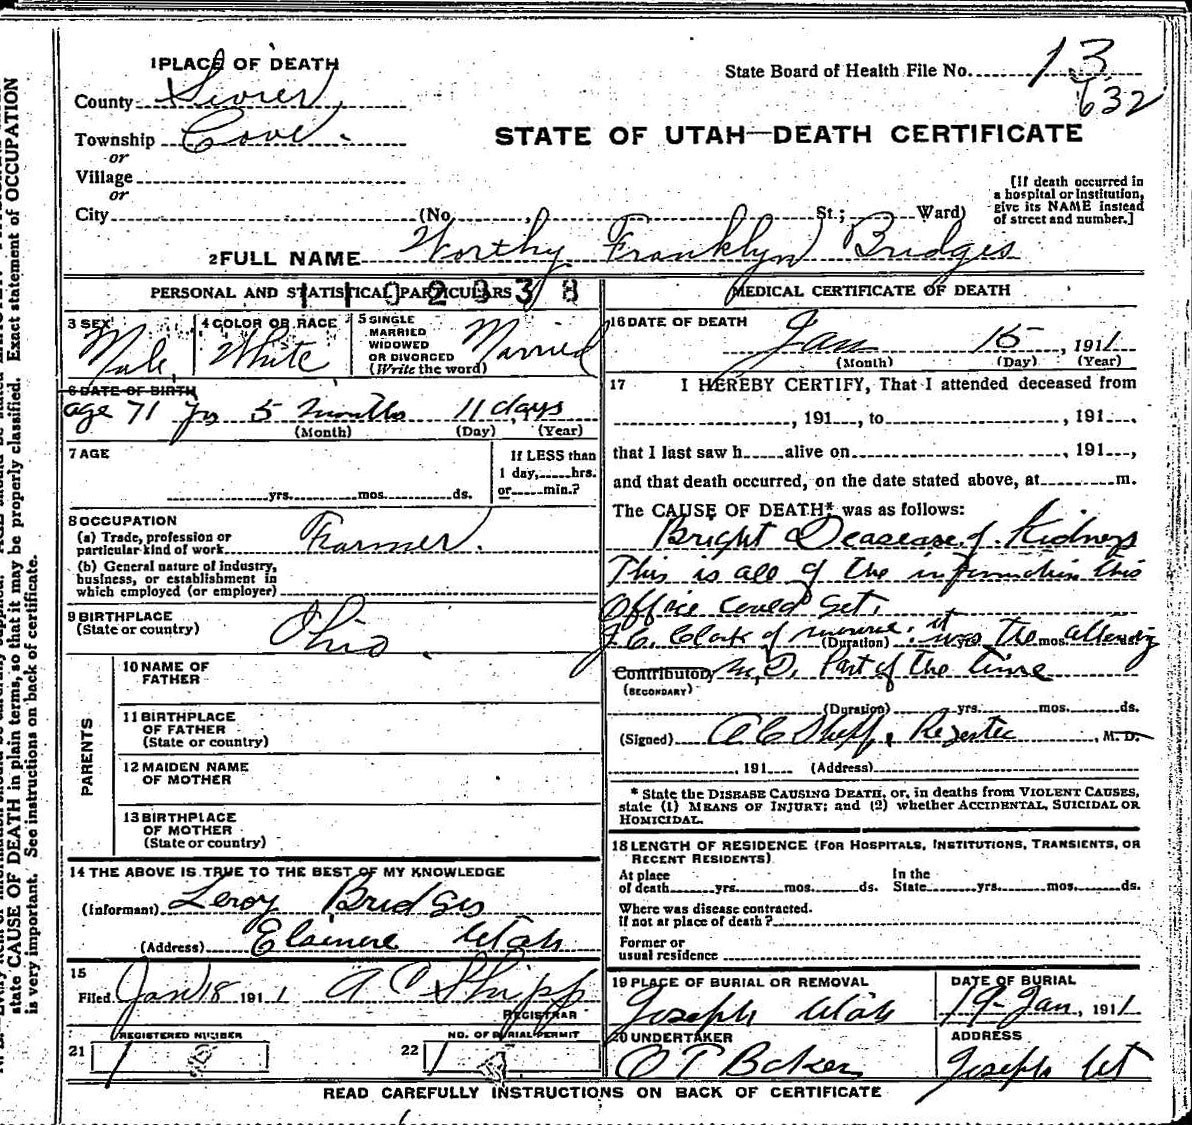 1 PLACE OF DEATH
State Board of Health File No. 13
632
County Sevier
Township Cove.
STATE OF UTAH—DEATH CERTIFICATE
or
Village
or
City (No. , St.; Ward)
[If death occurred in a hospital or Institution, give its NAME instead of street and number.]
2 FULL NAME Worthy Franklyn Bridges
PERSONAL AND STATISTICAL PARTICULARS
MEDICAL CERTIFICATE OF DEATH
3 SEX Male
4 COLOR OR RACE White
5 SINGLE MARRIED WIDOWED OR DIVORCED (Write the word) Married
6 DATE OF BIRTH
age 71 yrs 5 months 11 days
(Month) (Day) (Year)
7 AGE
yrs. mos. ds.
If LESS than
1 day, hrs.
or min.?
8 OCCUPATION
(a) Trade, profession or particular kind of work Farmer.
(b) General nature of industry, business, or establishment in which employed (or employer)
9 BIRTHPLACE
(State or country) Ohio.
PARENTS
10 NAME OF FATHER
11 BIRTHPLACE OF FATHER (State or country)
12 MAIDEN NAME OF MOTHER
13 BIRTHPLACE OF MOTHER (State or country)
14 THE ABOVE IS TRUE TO THE BEST OF MY KNOWLEDGE
(Informant) Leroy Bridges
(Address) Elsinore Utah
15
Filed Jan 18 1911 A C Shipp
REGISTRAR
REGISTERED NUMBER
21 1
NO. OF BURIAL PERMIT
22 1
16 DATE OF DEATH
Jan 15, 1911
(Month) (Day) (Year)
17 I HEREBY CERTIFY, That I attended deceased from
, 191 , to , 191
that I last saw h alive on , 191 ,
and that death occurred, on the date stated above, at m.
The CAUSE OF DEATH* was as follows:
Bright Deasease of Kidneys
This is all of the information this
Office could get.
Clark of it was the attending
(Duration) yrs. mos. ds.
Contributory M.D. Part of the time
(SECONDARY)
(Duration) yrs. mos. ds.
(Signed) A C Shipp, , M. D.
, 191 (Address)
* State the DISEASE CAUSING DEATH, or, in deaths from VIOLENT CAUSES,
state (1) MEANS OF INJURY; and (2) whether ACCIDENTAL, SUICIDAL OR
HOMICIDAL.
18 LENGTH OF RESIDENCE (FOR HOSPITALS, INSTITUTIONS, TRANSIENTS, OR
RECENT RESIDENTS)
At place of death yrs. mos. ds. In the State yrs. mos. ds.
Where was disease contracted.
if not at place of death?
Former or
usual residence
19 PLACE OF BURIAL OR REMOVAL
Joseph Utah
DATE OF BURIAL
19 Jan, 1911
20 UNDERTAKER
O T Baker
ADDRESS
Joseph Ut
READ CAREFULLY INSTRUCTIONS ON BACK OF CERTIFICATE
state CAUSE OF DEATH in plain terms, so that it may be properly classified. Exact statement of OCCUPATION
is very important. See instructions on back of certificate.